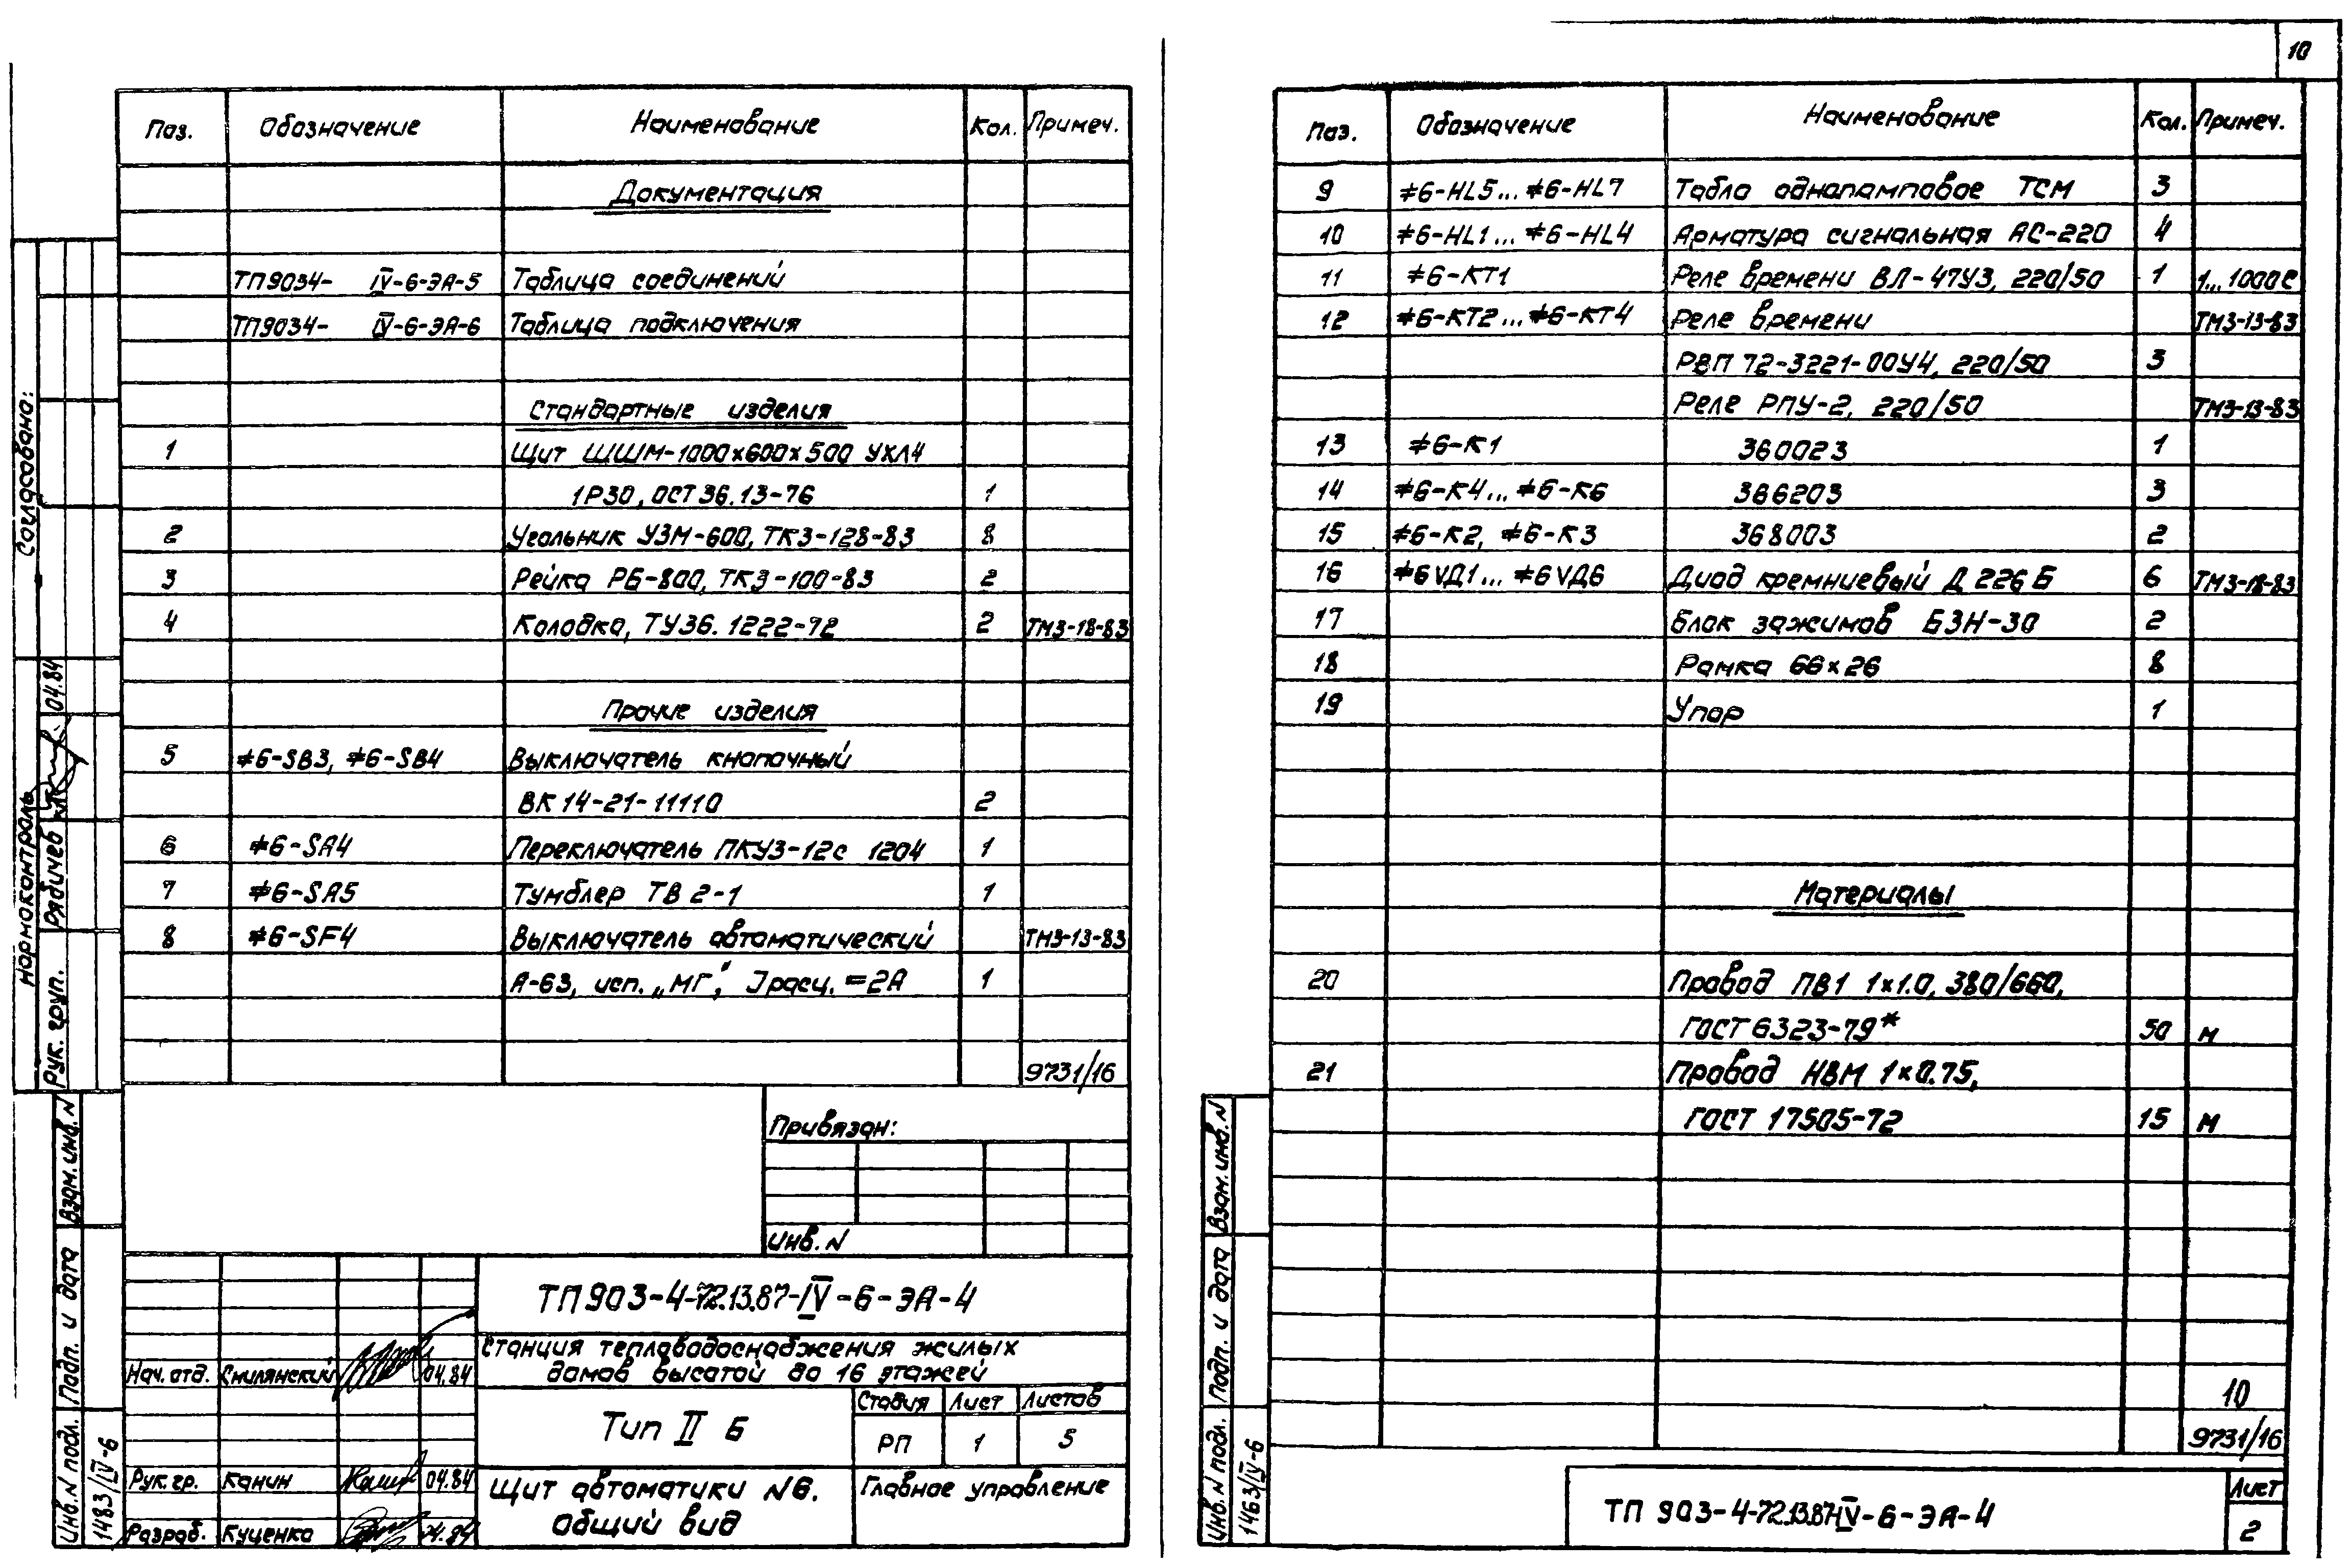 Поз. Обозначение Наименование Кол. Примеч.
Документация
ТП9034- IV-6-ЭА-5 Таблица соединений
ТП9034- IV-6-ЭА-6 Таблица подключения
Стандартные изделия
1 Щит ШШМ-1000х600х500 УХЛ4
1Р30, ОСТ 36.13-76 1
2 Угольник УЗМ-600, ТК3-128-83 8
3 Рейка РБ-800, ТК3-100-83 2
4 Колодка, ТУ36.1222-72 2 ТМ3-18-83
Прочие изделия
5 ≠6-SB3, ≠6-SB4 Выключатель кнопочный
ВК 14-21-11110 2
6 ≠6-SA4 Переключатель ПКУ3-12с 1204 1
7 ≠6-SA5 Тумблер ТВ 2-1 1
8 ≠6-SF4 Выключатель автоматический ТМ3-13-83
А-63, исп. „МГ", Jрасц. =2А 1
9731/16
Согласовано:
Нормоконтроль
Рук. груп. Рябичев 04.84
Взам. инв. N
Подп. и дата
Инв. N подл. 1483/IV-6
Привязан:
Инв. N
ТП 903-4-72.13.87-IV-6-ЭА-4
Станция тепловодоснабжения жилых
домов высотой до 16 этажей
Нач. отд. Смилянский 04.84
Тип II Б
Стадия Лист Листов
РП 1 5
Рук. гр. Канин 04.84
Разраб. Куценко 04.84
Щит автоматики N6.
Общий вид
Главное управление
10
Поз. Обозначение Наименование Кол. Примеч.
9 ≠6-HL5... ≠6-HL7 Табло однопамповое ТСМ 3
10 ≠6-HL1... ≠6-HL4 Арматура сигнальная АС-220 4
11 ≠6-КТ1 Реле времени ВЛ-47У3, 220/50 1 1...1000с
12 ≠6-КТ2... ≠6-КТ4 Реле времени ТМ3-13-83
РВП 72-3221-00У4, 220/50 3
Реле РПУ-2, 220/50 ТМ3-13-83
13 ≠6-К1 360023 1
14 ≠6-К4... ≠6-К6 366203 3
15 ≠6-К2, ≠6-К3 368003 2
16 ≠6VД1... ≠6VД6 Диод кремниевый Д 226 Б 6 ТМ3-18-83
17 Блок зажимов БЗН-30 2
18 Рамка 66х26 8
19 Упор 1
Материалы
20 Провод ПВ1 1х1.0, 380/660,
ГОСТ 6323-79* 50 м
21 Провод НВМ 1х0.75,
ГОСТ 17505-72 15 м
10
9731/16
Взам. инв. N
Подп. и дата
Инв. N подл. 1463/IV-6
ТП 903-4-72.13.87-IV-6-ЭА-4
Лист
2